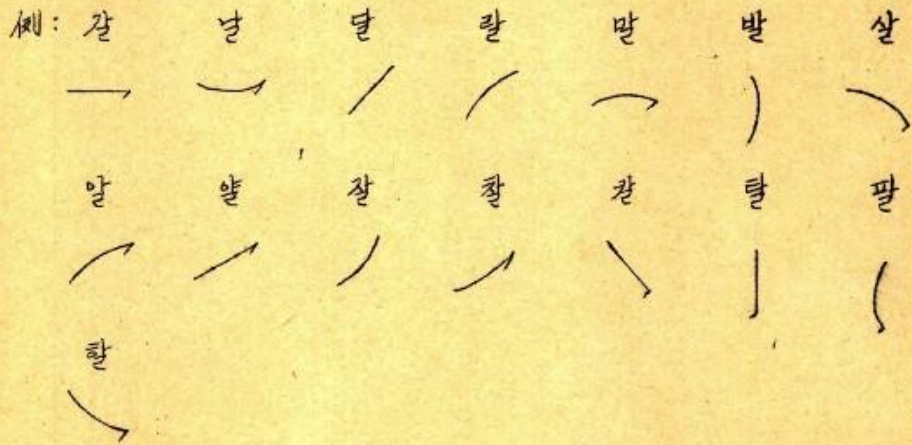 例: 갈 날 달 랄 말 발 살
알 얄 잘 찰 칼 탈 팔
할